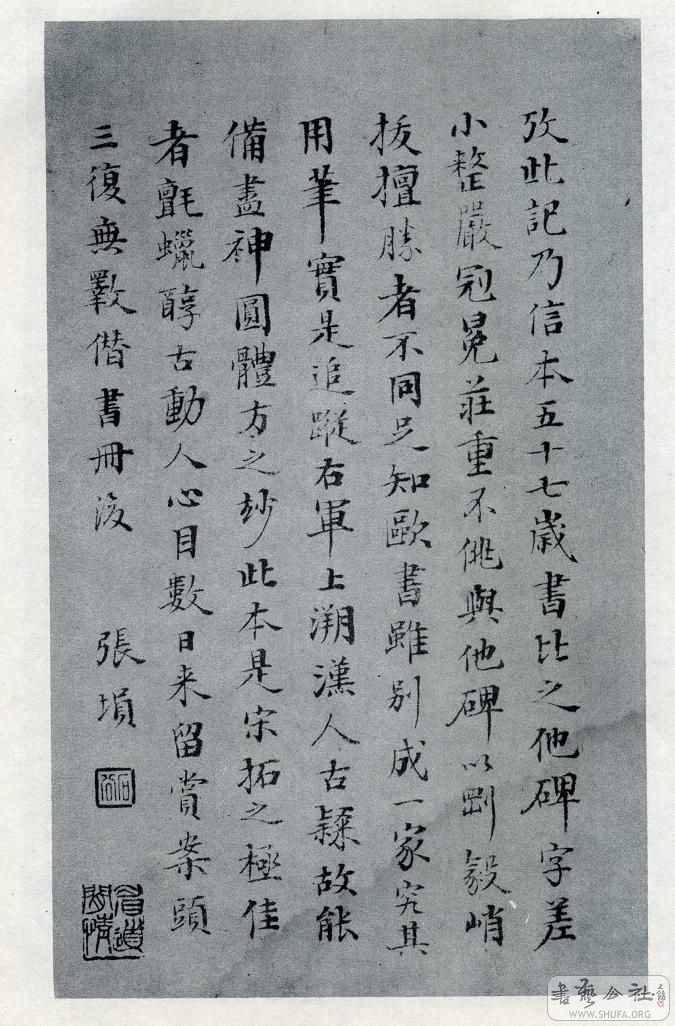 攷此記乃信本五十七歲書比之他碑字差
小整嚴冠冕莊重不佻與他碑以剛毅峭
拔擅勝者不同足知歐書雖別成一家究其
用筆實是追蹤右軍上溯漢人古隸故能
備盡神圓體方之妙此本是宋拓之極佳
者氈蠟醇古動人心目數日来留賞案頭
三復無斁僣書冊後
張塤
石公
書藝公社
WWW.SHUFA.ORG